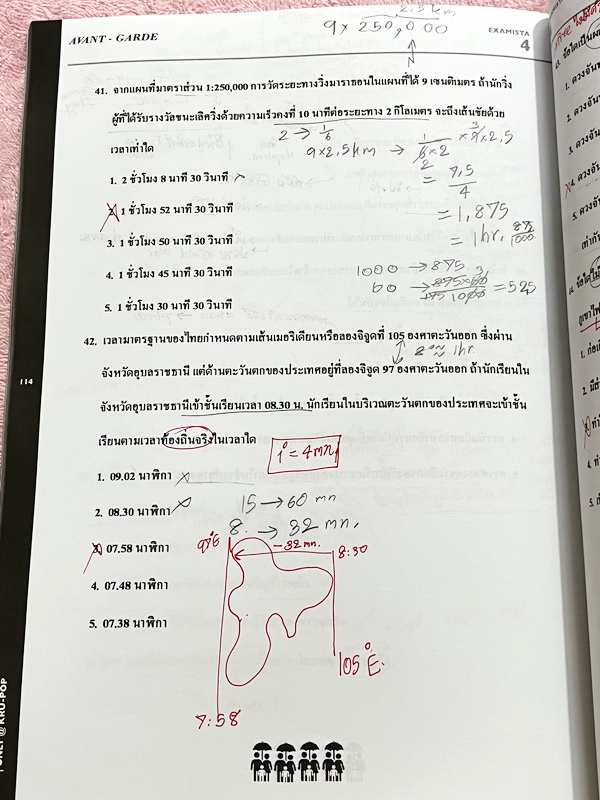 AVANT - GARDE
2.5 km
9 x 250,000
EXAMISTA
4
N
41. จากแผนที่มาตราส่วน 1:250,000 การวัดระยะทางวิ่งมาราธอนในแผนที่ได้ 9 เซนติเมตร ถ้านักวิ่ง
ผู้ที่ได้รับรางวัลชนะเลิศวิ่งด้วยความเร็วคงที่ 10 นาทีต่อระยะทาง 2 กิโลเมตร จะถึงเส้นชัยด้วย
เวลาเท่าใด
2 → 1/6
9x2.5km → 1/6x2 x 9x2.5
1. 2 ชั่วโมง 8 นาที 30 วินาที
= 7.5/4
2. 1 ชั่วโมง 52 นาที 30 วินาที
= 1,875
3. 1 ชั่วโมง 50 นาที 30 วินาที
= 1 hr. 875/1000
4. 1 ชั่วโมง 45 นาที 30 วินาที
1000 → 875
60 → 875x60/1000 = 525
5. 1 ชั่วโมง 30 นาที 30 วินาที
42. เวลามาตรฐานของไทยกำหนดตามเส้นเมอริเดียนหรือลองจิจูดที่ 105 องศาตะวันออก ซึ่งผ่าน
8° ≈ 1hr.
จังหวัดอุบลราชธานี แต่ด้านตะวันตกของประเทศอยู่ที่ลองจิจูด 97 องศาตะวันออก ถ้านักเรียนใน
จังหวัดอุบลราชธานีเข้าชั้นเรียนเวลา 08.30 น. นักเรียนในบริเวณตะวันตกของประเทศจะเข้าชั้น
เรียนตามเวลาท้องถิ่นจริงในเวลาใด
1° = 4mn
1. 09.02 นาฬิกา
2. 08.30 นาฬิกา
15 → 60 mn
8. → 32 mn.
3. 07.58 นาฬิกา
97°E
-32 mn.
8:30
4. 07.48 นาฬิกา
5. 07.38 นาฬิกา
105°E.
7:58
114
ONLY @ KRU-POP